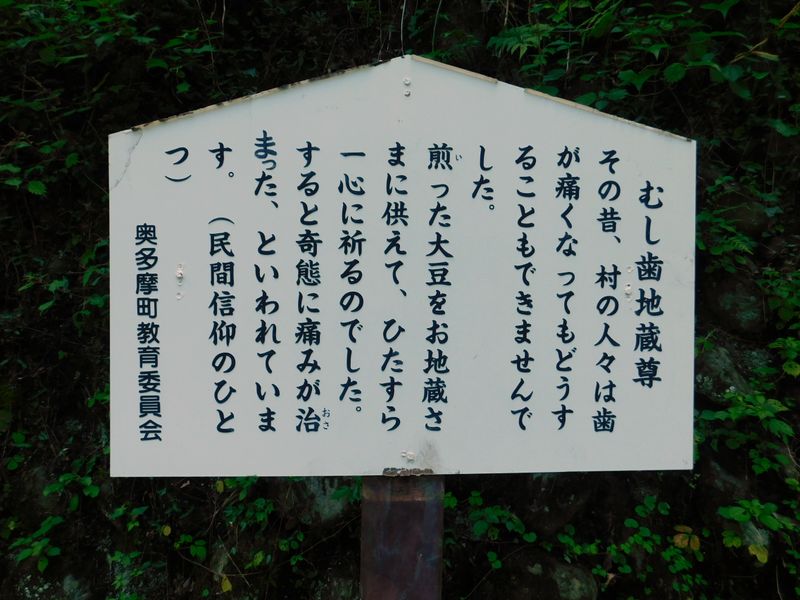 むし歯地蔵尊
その昔、村の人々は歯
が痛くなってもどうす
ることもできませんで
した。
煎った大豆をお地蔵さ
まに供えて、ひたすら
一心に祈るのでした。
すると奇態に痛みが治
まった、といわれていま
す。（民間信仰のひと
つ）
奥多摩町教育委員会
い
おさ